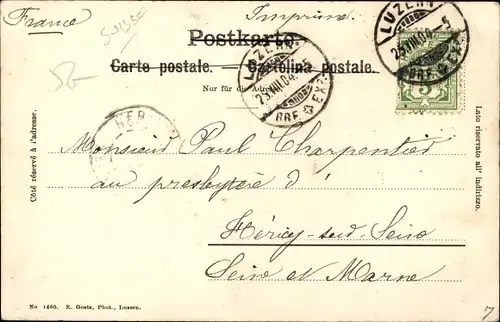 France
Suisse
Imprimé
Postkarte.
Carte postale. — Cartolina postale.
Nur für die Adresse
LUZERN
25.VIII.04.-5
BRF. EXP.
LUZERN
25.VIII.04.-5
BRF. EXP.
5
HER
Côté réservé à l'adresse.
Lato riservato all' indirizzo.
Monsieur Paul Charpentier
au presbytère d'
Héricy-sud-Seine
Seine et Marne
No 1460. E. Goetz, Phot., Luzern.
7